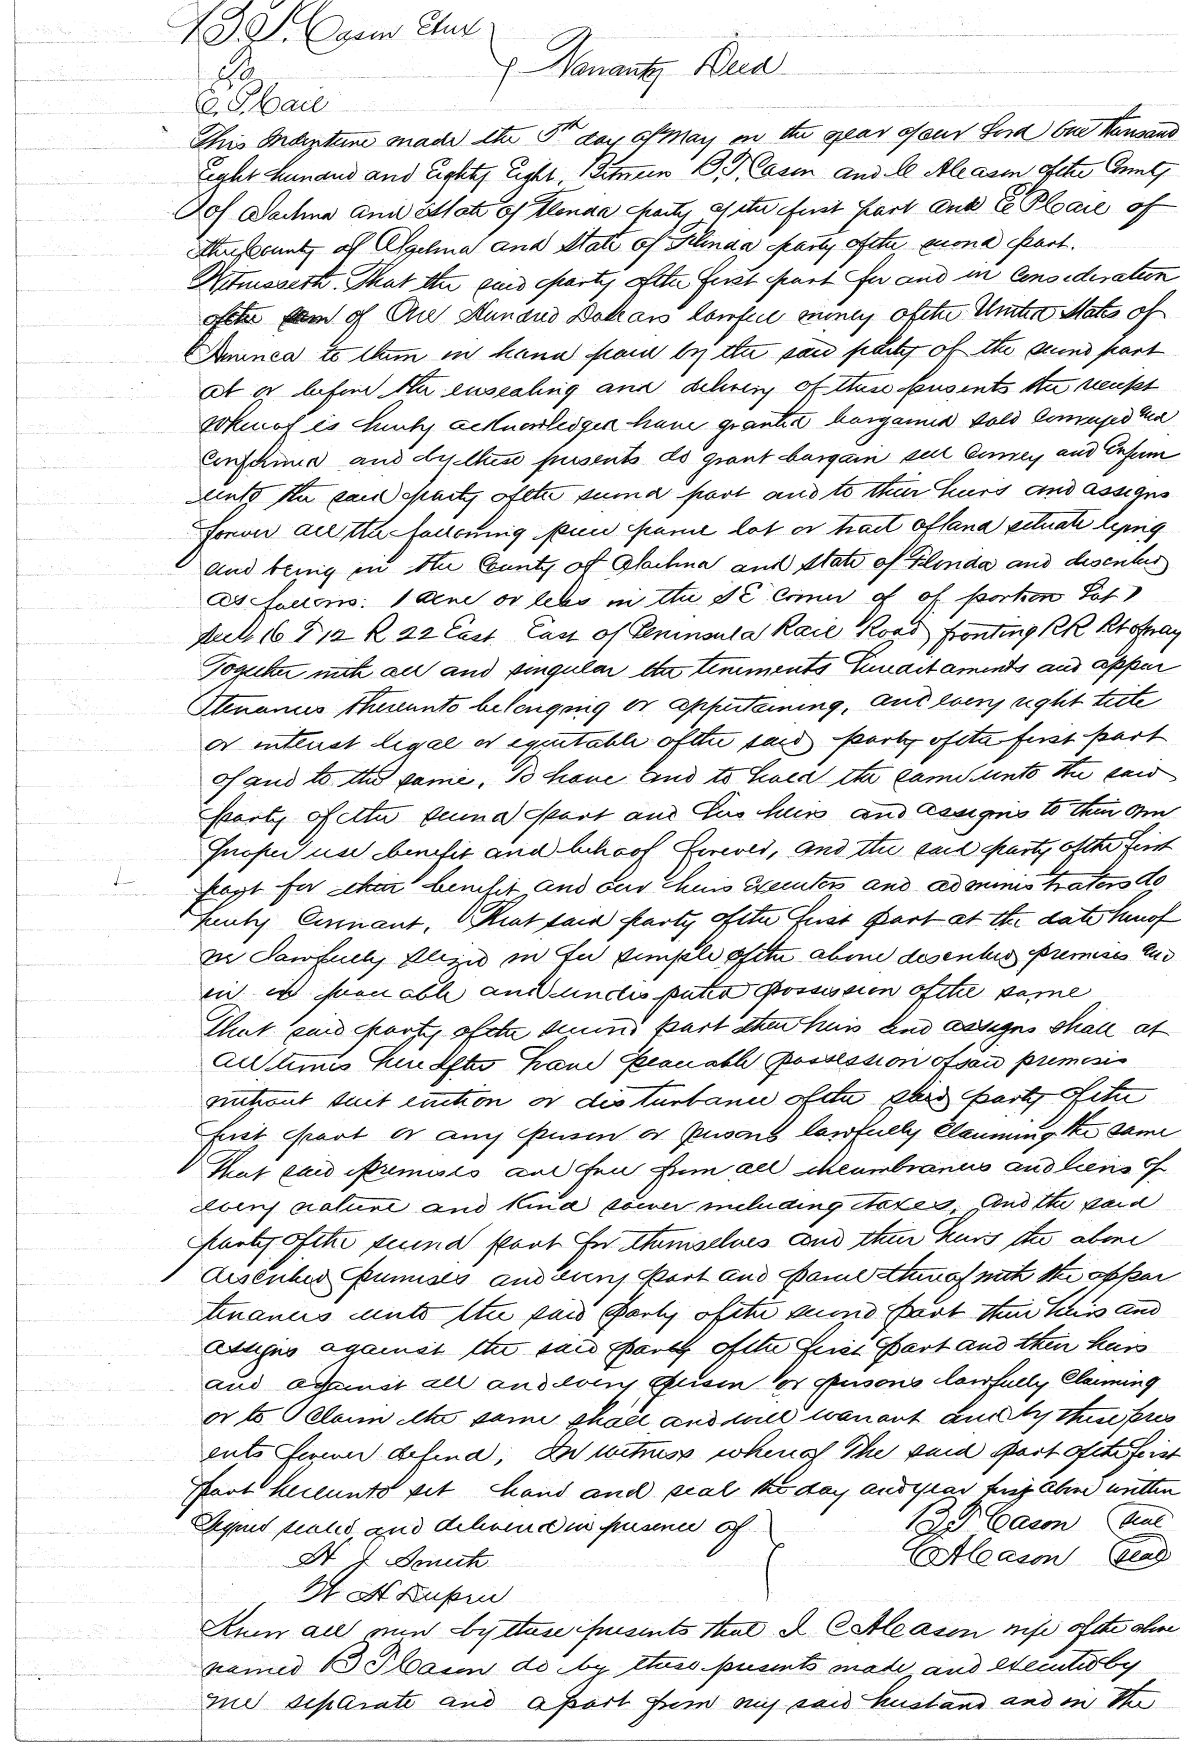 B. T. Cason Etux
To
Warranty Deed
C. P. Hail
This Indenture made the 5th day of May in the year of our Lord One thousand
Eight hundred and Eighty Eight, Between B. T. Cason and C A Cason of the County
of Alachua and State of Florida party of the first part and C P Hail of
the County of Alachua and State of Florida party of the second part.
Witnesseth. That the said party of the first part for and in consideration
of the sum of One Hundred Dollars lawful money of the United States of
America to them in hand paid by the said party of the second part
at or before the ensealing and delivery of these presents the receipt
whereof is hereby acknowledged have granted bargained sold conveyed and
confirmed and by these presents do grant bargain sell convey and confirm
unto the said party of the second part and to their heirs and assigns
forever all the following piece parcel lot or tract of land situate lying
and being in the County of Alachua and State of Florida and described
as follows: 1 acre or less in the SE corner of of portion Lot 7
Sect 16 T 12 R 22 East East of Peninsula Rail Road fronting RR Rt of way
Together with all and singular the tenements hereditaments and appur
tenances thereunto belonging or appertaining, and every right title
or interest legal or equitable of the said party of the first part
of and to the same. To have and to hold the same unto the said
party of the second part and his heirs and assigns to their own
proper use benefit and behoof forever, and the said party of the first
part for their benefit and our heirs Executors and administrators do
hereby Covenant, That said party of the first part at the date hereof
are lawfully siezed in fee simple of the above described premises and
in peaceable and undisputed possession of the same
That said party of the second part their heirs and assigns shall at
all times hereafter have peaceable possession of said premises
without suit eviction or disturbance of the said party of the
first part or any person or persons lawfully Claiming the same
That said premises are free from all incumbrances and liens of
every nature and Kind soever including taxes, And the said
party of the second part for themselves and their heirs the above
described premises and every part and parcel thereof with the appur
tenances unto the said party of the second part their heirs and
assigns against the said party of the first part and their heirs
and against all and every person or persons lawfully Claiming
or to Claim the same shall and will warrant and by these pres
ents forever defend, In witness whereof The said part of the first
part hereunto set hand and seal the day and year first above written
Signed sealed and delivered in presence of
B T Cason Seal
H J Smith
C A Cason Seal
W H Dupree
Know all men by these presents that I C A Cason wife of the above
named B T Cason do by these presents made and executed by
me separate and apart from my said husband and in the